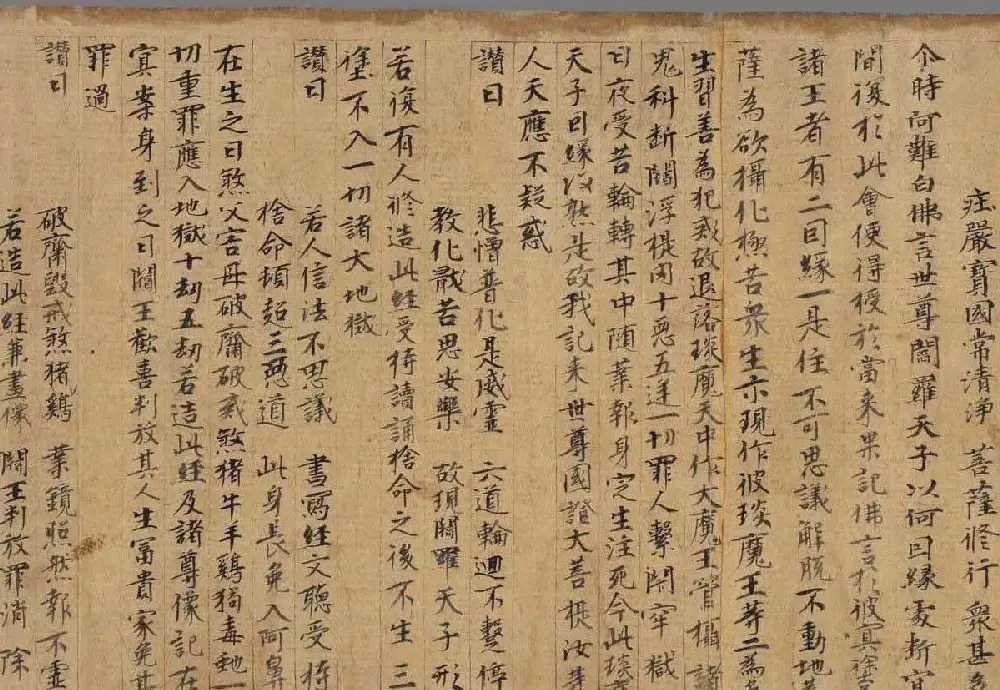 莊嚴寶國常清淨 菩薩修行衆甚
尒時阿難白佛言世尊閻羅天子以何因緣處斷冥
間復於此會便得授於當來果記佛言於彼冥途
諸王者有二因緣一是住不可思議解脫不動地
薩為欲攝化極苦衆生示現作彼琰魔王等二為
生習善為犯戒故退落琰魔天中作大魔王管攝諸
鬼科斷閻浮提內十惡五逆一切罪人繫閉牢獄
日夜受苦輪轉其中随業報身定生注死今此琰
天子因緣以熟是故我記來世尊國證大菩提汝等
人天應不疑惑
讚曰 悲憎普化是威靈 六道輪迴不蹔停
教化猒苦思安樂 故現閻羅天子形
若復有人修造此經受持讀誦捨命之後不生三
塗不入一切諸大地獄
讚曰 若人信法不思議 書寫經文聽受持
捨命頓超三惡道 此身長免入阿鼻
在生之日煞父害母破齋破戒煞猪牛羊鷄狗毒虵一
切重罪應入地獄十劫五劫若造此經及諸尊像記在
冥案身到之日閻王歡善判放其人生富貴家免其
罪過
讚曰 破齋毀戒煞猪鷄 業鏡照然報不虛
若造此經兼畫像 閻王判放罪消除